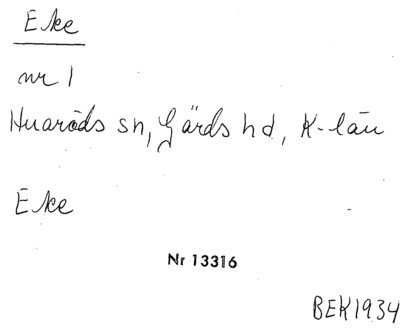 Eke
nr 1
Huaröds sn, Gärds hd, K-län
Eke
Nr 13316
BEK1934